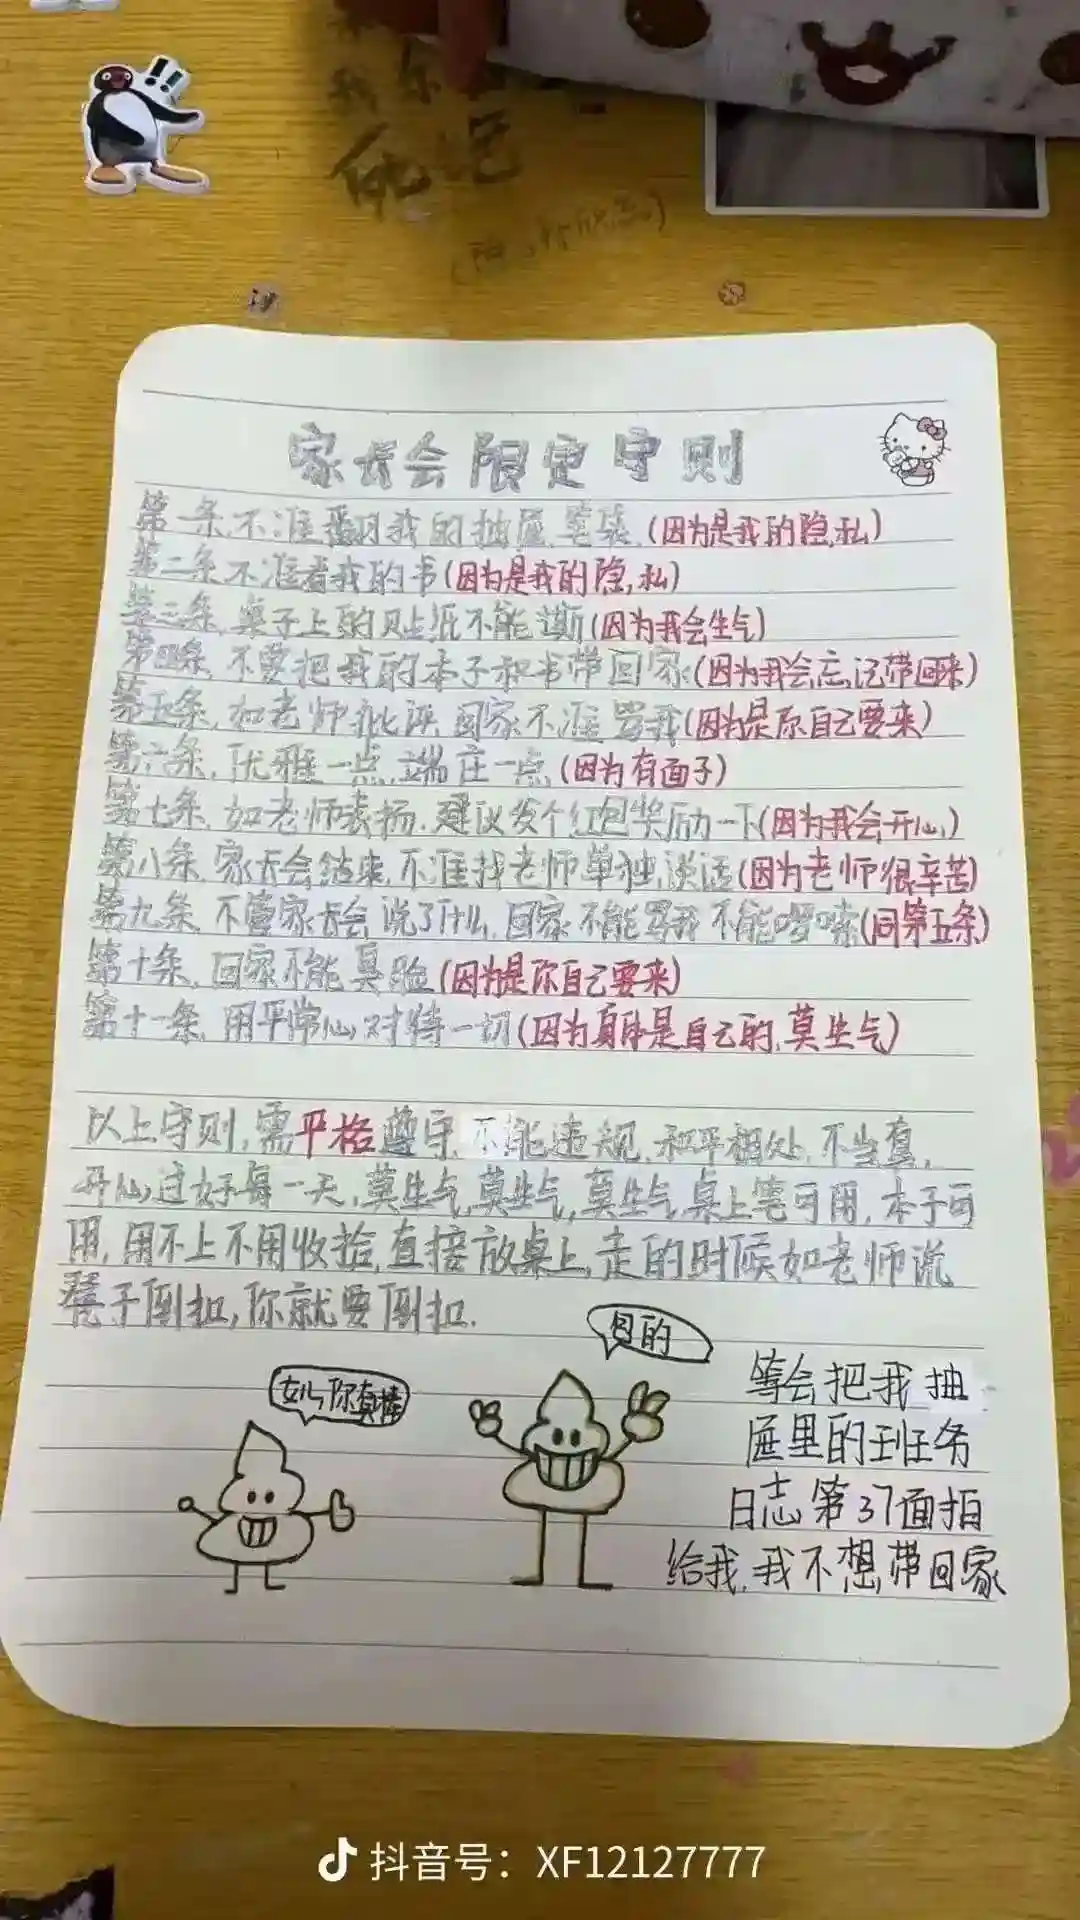 家长会限定守则
第一条,不准翻我的抽屉,笔袋,(因为是我的隐私)
第二条,不准看我的书(因为是我的隐私)
第三条,桌子上的贴纸不能撕(因为我会生气)
第四条,不要把我的本子和书带回家(因为我会忘记带回来)
第五条,如老师批评,回家不准骂我(因为是你自己要来)
第六条,优雅一点,端庄一点(因为有面子)
第七条,如老师表扬,建议发个红包奖励一下(因为我会开心)
第八条,家长会结束,不准找老师单独谈话(因为老师很辛苦)
第九条,不管家长会说了什么,回家不能骂我不能啰嗦(同第五条)
第十条,回家不能臭脸(因为是你自己要来)
第十一条,用平常心对待一切(因为身体是自己的,莫生气)
以上守则,需严格遵守,不能违规,和平相处,不当真,
开心过好每一天,莫生气,莫生气,莫生气,桌上笔可用,本子可
用,用不上不用收拾,直接放桌上,走的时候如老师说
凳子倒扣,你就要倒扣.
女儿你真棒
真的
等会把我抽
屉里的班务
日志第37面拍
给我,我不想带回家
抖音号：XF12127777